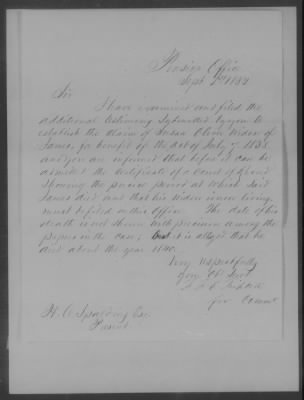 Pension Office
Sept
Sir
I have examined and filed the
additional testimony submitted by you to
establish the claim of Susan Olvin Widow of
James, for benefit of the Act of July 7th 1838
and you are informed that before it can be
admitted the Certificate of a Court of Record
showing the precise period at which said
James died and that his Widow is now living,
must be filed in this Office. The date of his
death is not shown with precision among the
papers in the case; but it is alleged that he
died about the year 1840.
Very respectfully
Your Obt Servt
for Commr
H. C. Spalding Esq.
Present